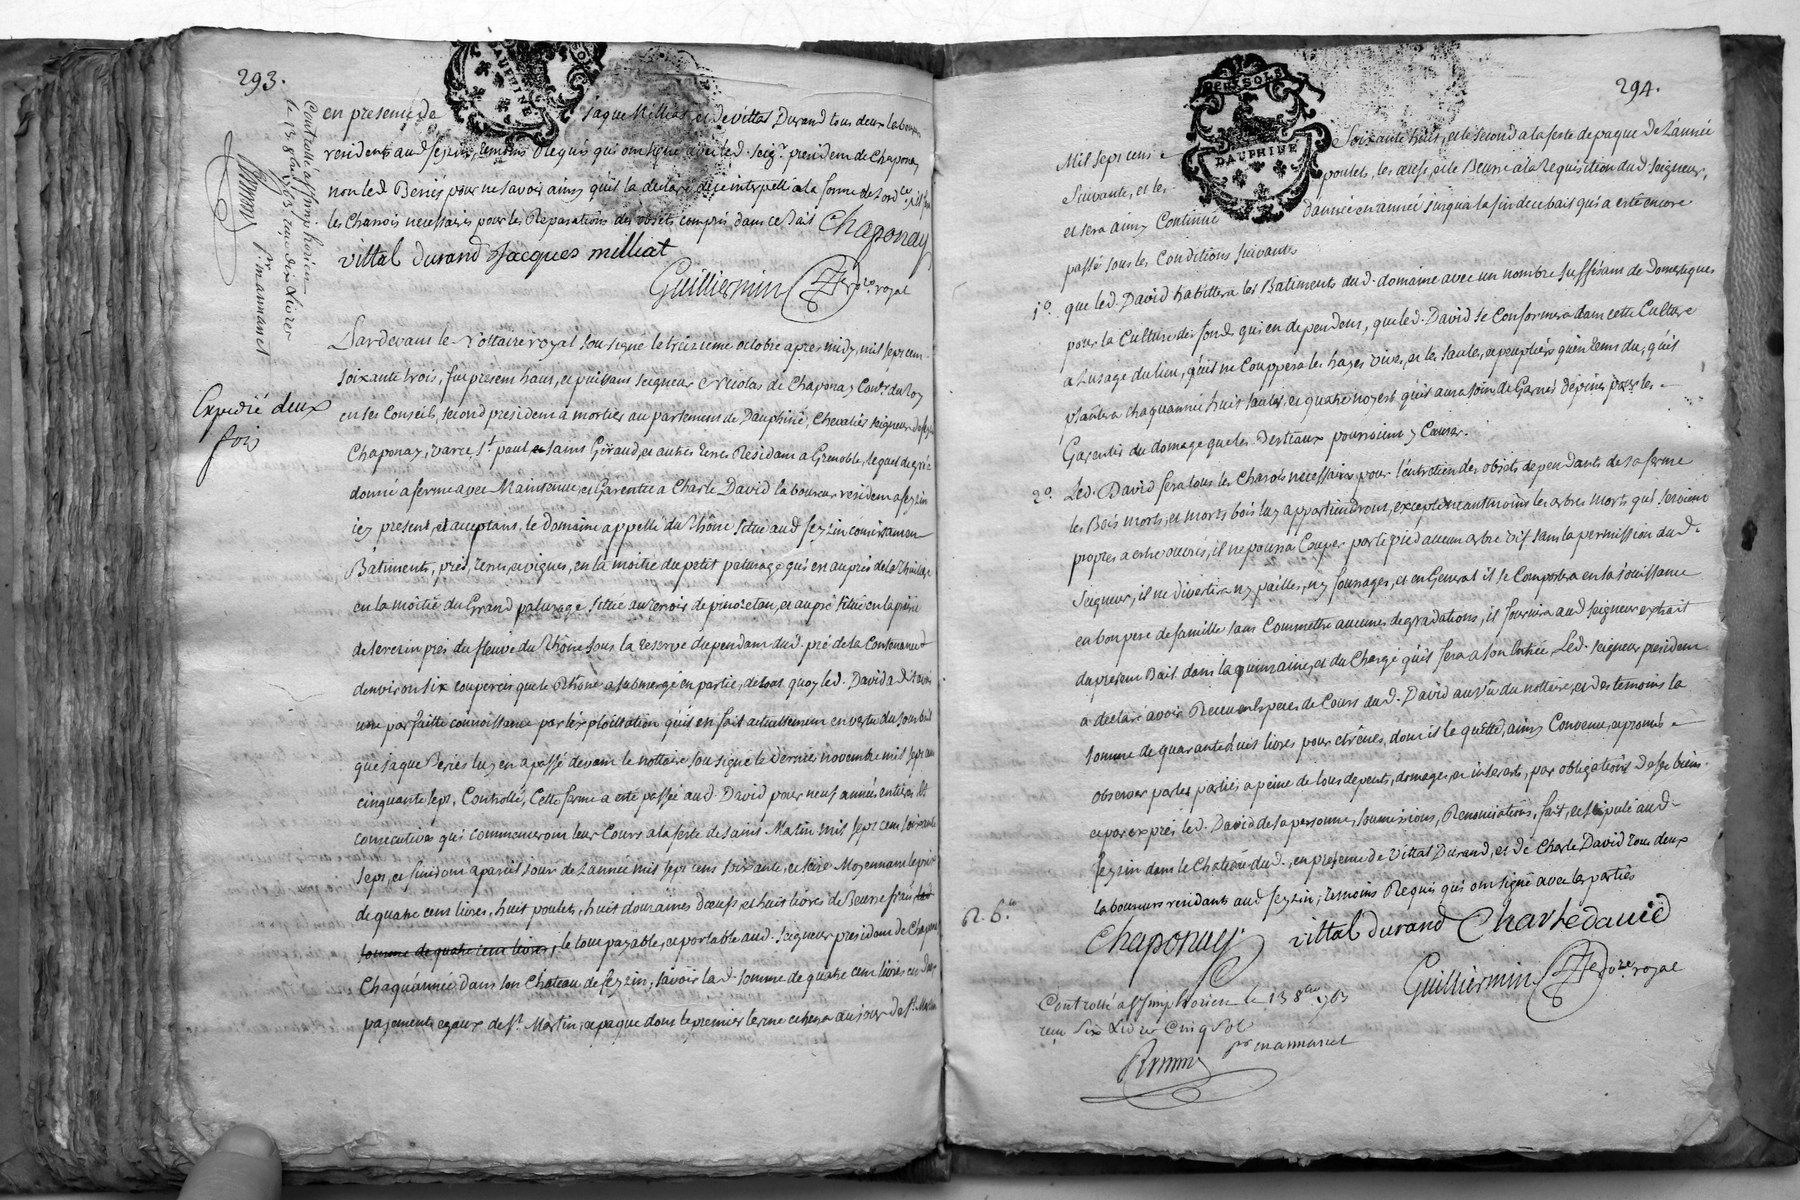 293.
en presence de Jaque Milliat, et de vittal Durand tous deux laboureurs
residents aud. feyzin, temoins Requis qui ont signé avec led. seigr. president de Chaponay
non led. Beriés pour ne savoir ainsy qu'il la declaré de ce interpellé a la forme de l'ordce.
les Charrois necessaires pour les Reparations des objets compris dans ce bail Chaponay
vittal durand Jacques milliat
Guilliermin no.re royal
Controllé a st simphorien
le 13 8bre 1763 reçu dix Livres
pr. mammanet
Expedié deux
fois
Pardevant le Nottaire royal soussigné le treizieme octobre apres midy, mil sept cent
soixante trois, fut present haut, et puissant seigneur Nicolas de Chaponay Conér. du Roy
en ses Conseils, second president a mortier au parlement de Dauphiné, Chevalier seigneur de feyzin
Chaponay, varce, st. paul et saint Géraud, et autres terres Residant a Grenoble, lequel de gré a
donné a ferme avec Maintenue, et Garentie a Charle David laboureur resident a feyzin
icy present et acceptant, le domaine appellé du Rhône situé aud. feyzin consistant en
Bâtiments, prés, terres, et vignes, en la moitié du petit paturage qui est auprés de la
en la moitié du Grand paturage situé au terroir de et au pré situé en la
de feverin prés du fleuve du Rhône sous la reserve dependant dud. pré de la Contenance
d'environ six couperées que le Rhône a submergé en partie, de tout quoy led. David a dit avoir
une parfaitte connoissance par l'exploittation qu'il en fait actuellement en vertu du sous bail
que Jaque Periés luy en a passé devant le nottaire soussigné le dernier novembre mil sept cent
cinquante sept, Controllé, Cette ferme a esté passée aud. David pour neuf années entieres et
consecutives qui commenceront leur Cours a la feste de saint Martin mil sept cent soixante
sept, et finiront a pareil jour de l'année mil sept cent soixante, et seize Moyennant le prix
de quatre cent livres, huit poulets, huit douzaines d'œufs, et huit livres de Beurre frais
somme de quatre cent livres, le tout payable, et portable aud. seigneur president de Chaponay
Chaqu'année dans son Chateau de feyzin, savoir lad. somme de quatre cent livres en deux
payements egaux de st. Martin, et paque dont le premier terme echerra au jour de st. Martin
294.
DAUPHINE
Mil sept cent soixante huit, et le second a la feste de paque de l'année
suivante, et les poulets, les œufs, et le Beurre a la Requisition dud. seigneur,
et sera ainsy Continué d'année en année jusqu'a la fin de ce bail qui a esté encore
passé sous les Conditions suivantes
1o. que led. David habittera les Batiments dud. domaine avec un nombre suffisant de Domestiques
pour la Culture des fonds qui en dependent, que led. David se Conformera dans cette Culture
a l'usage du lieu, qu'il ne Couppera les hayes vives, et les saules, et peupliers qu'en tems du, qu'il
plantera chaqu'année huit saules, et quatre noyers qu'il aura soin de Garnir d'épines pour les
Garentir du domage que les Bestiaux pourroient y Causer.
2o. Led. David fera tous les Charrois necessaires pour l'entretien des objets dependants de sa ferme
les Bois morts, et morts bois luy appartiendront, excepté neantmoins les arbres morts qui seroient
propres a estre ouvrés, il ne pourra Couper par le pied aucun arbre vif sans la permission dud.
seigneur, il ne divertira ny pailles, ny fourrages, et en General il se Comportera en sa jouissance
en bon pere de famille sans Commettre aucunes degradations, il fournira aud. seigneur extrait
du present Bail dans la quinzaine, et du Chargé qu'il fera a son Entrée Led. seigneur president
a declaré avoir Receu en Especes de Cours dud. David au vû du nottaire, et des temoins la
somme de quarante huit livres pour etrenes, dont il le quitte, ainsy Convenu, et promis
observer par les parties a peine de tous depents, domages, et interests, par obligations de ses biens
et par exprés led. David de sa personne, soumissions, Renonciations, fait, et stipulé aud.
feyzin dans le Chateau dud., en presence de Vittal Durand, et de Charle David tous deux
laboureurs residants aud. feyzin, temoins Requis qui ont signé avec les parties
Chaponay vittal durand Charle david
Guilliermin no.re royal
Controllé a st simphorien le 13 8bre 1763
reçu six Livres Cinq sols
pr mammanet